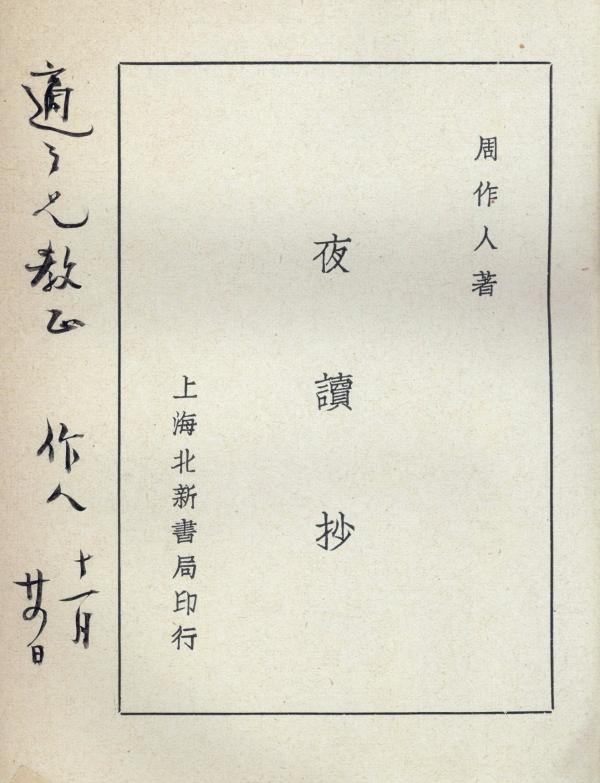 周作人著
夜讀抄
上海北新書局印行
適之兄教正
作人
十一月
廿四日